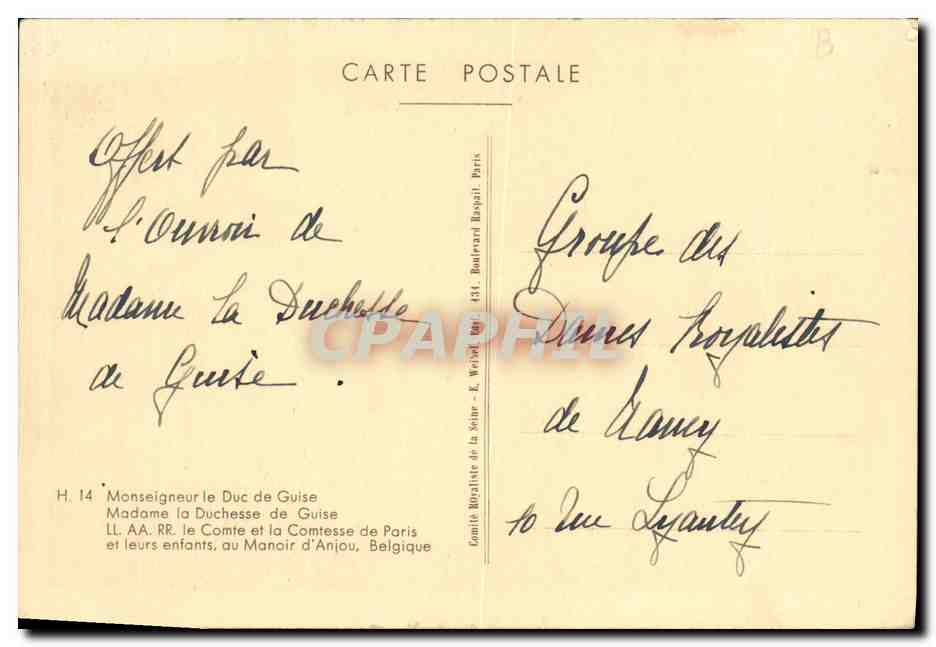 B
CARTE POSTALE
Offert par
l'Ouvroir de
Madame la Duchesse
de Guise.
H. 14 Monseigneur le Duc de Guise
Madame la Duchesse de Guise
LL. AA. RR. le Comte et la Comtesse de Paris
et leurs enfants, au Manoir d'Anjou, Belgique
Comité ROyaliste de la Seine - E. Weibel, 434, Boulevard Raspail, Paris
Groupe des
Dames Royalistes
de Nancy
10 Rue Lyautey
CPAPHIL